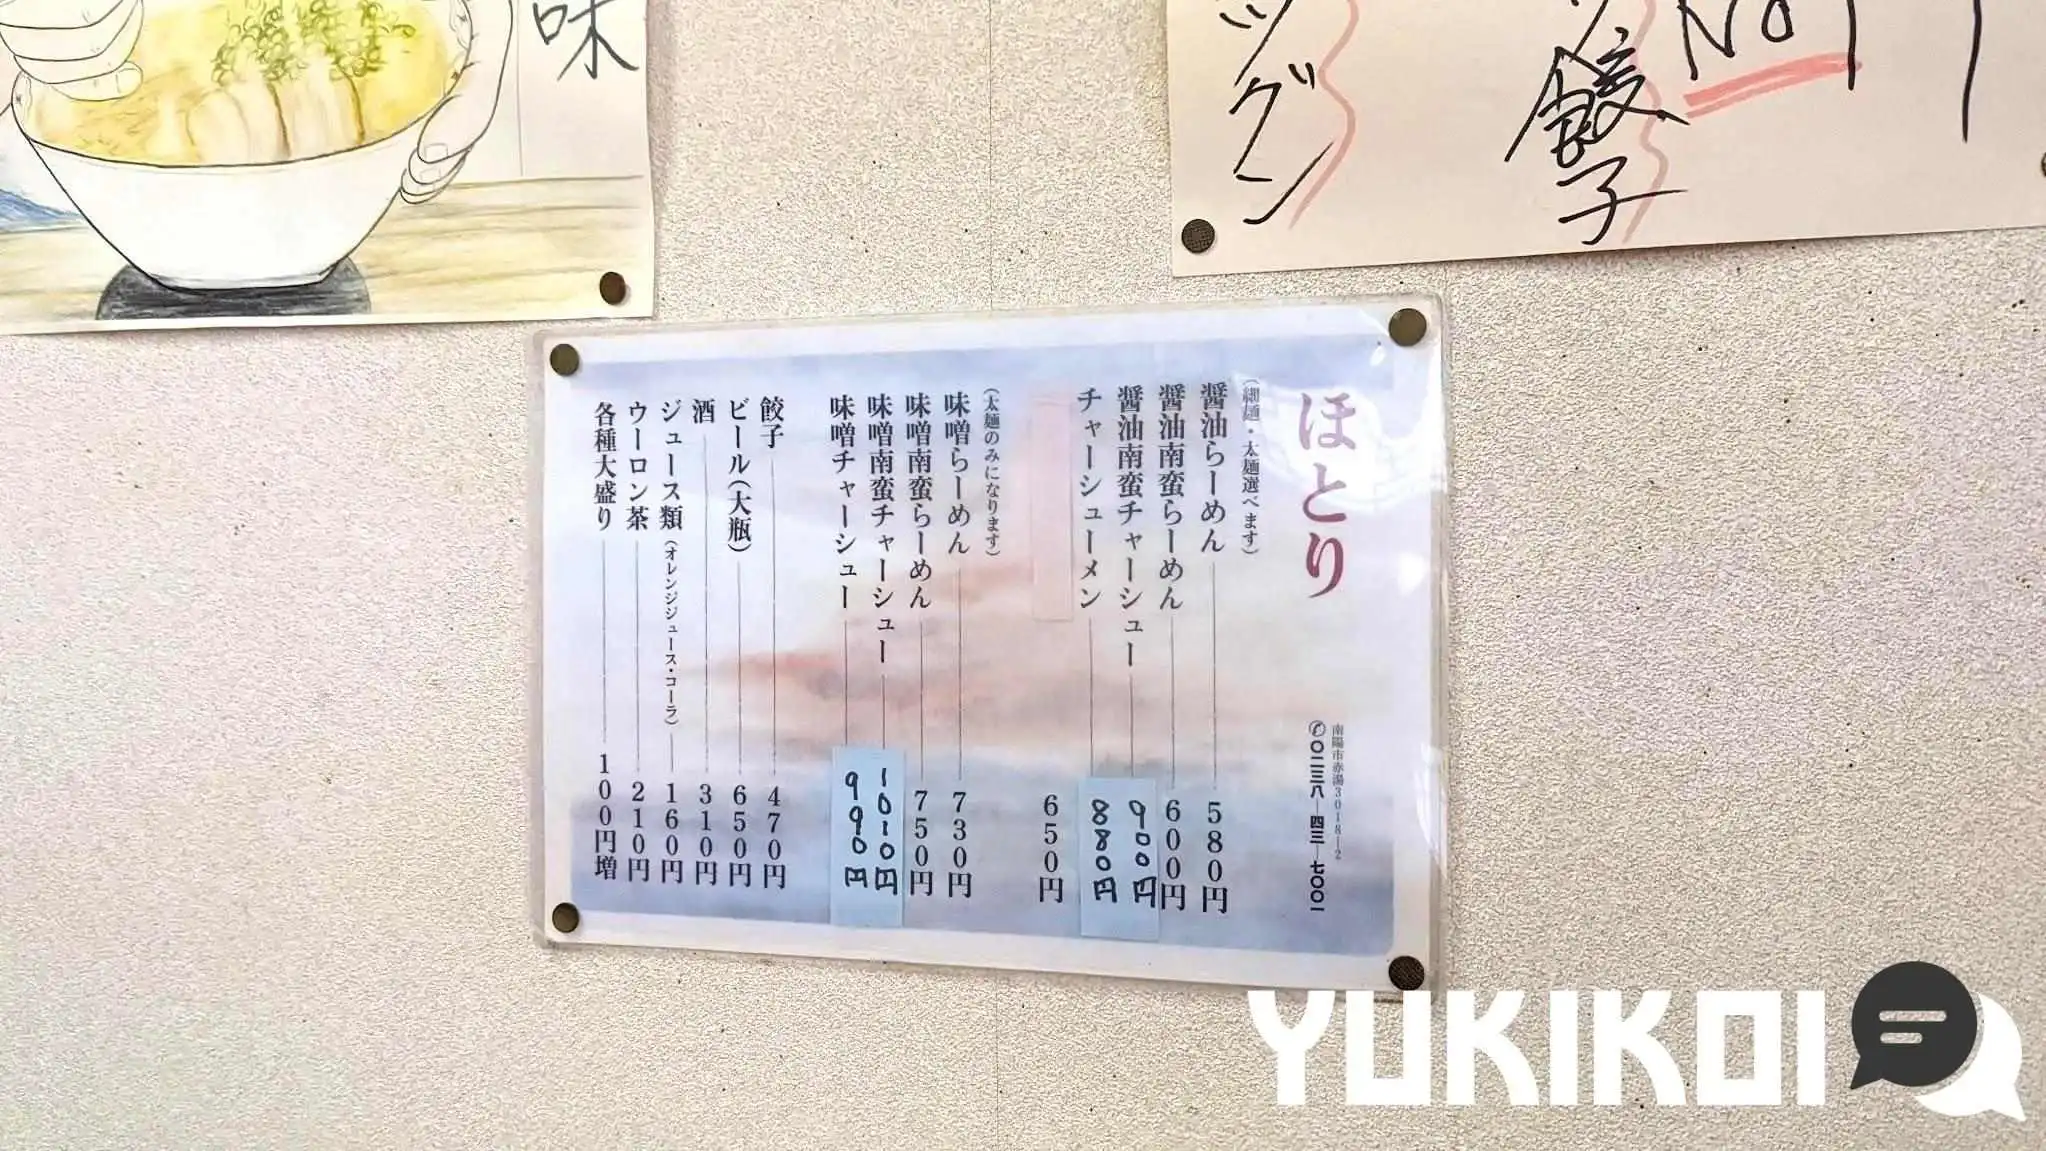 味
ッグン
餃子
No1
ほとり
南陽市赤湯3018-2
✆〇二三八―四三―七〇〇一
(細麺・太麺選べます)
醤油らーめん 580円
醤油南蛮らーめん 600円
醤油南蛮チャーシュー 900円
チャーシューメン 880円
650円
(太麺のみになります)
味噌らーめん 730円
味噌南蛮らーめん 750円
味噌南蛮チャーシュー 1010円
味噌チャーシュー 990円
餃子 470円
ビール(大瓶) 650円
酒 310円
ジュース類(オレンジジュース・コーラ) 160円
ウーロン茶 210円
各種大盛り 100円増
YUKIKOI